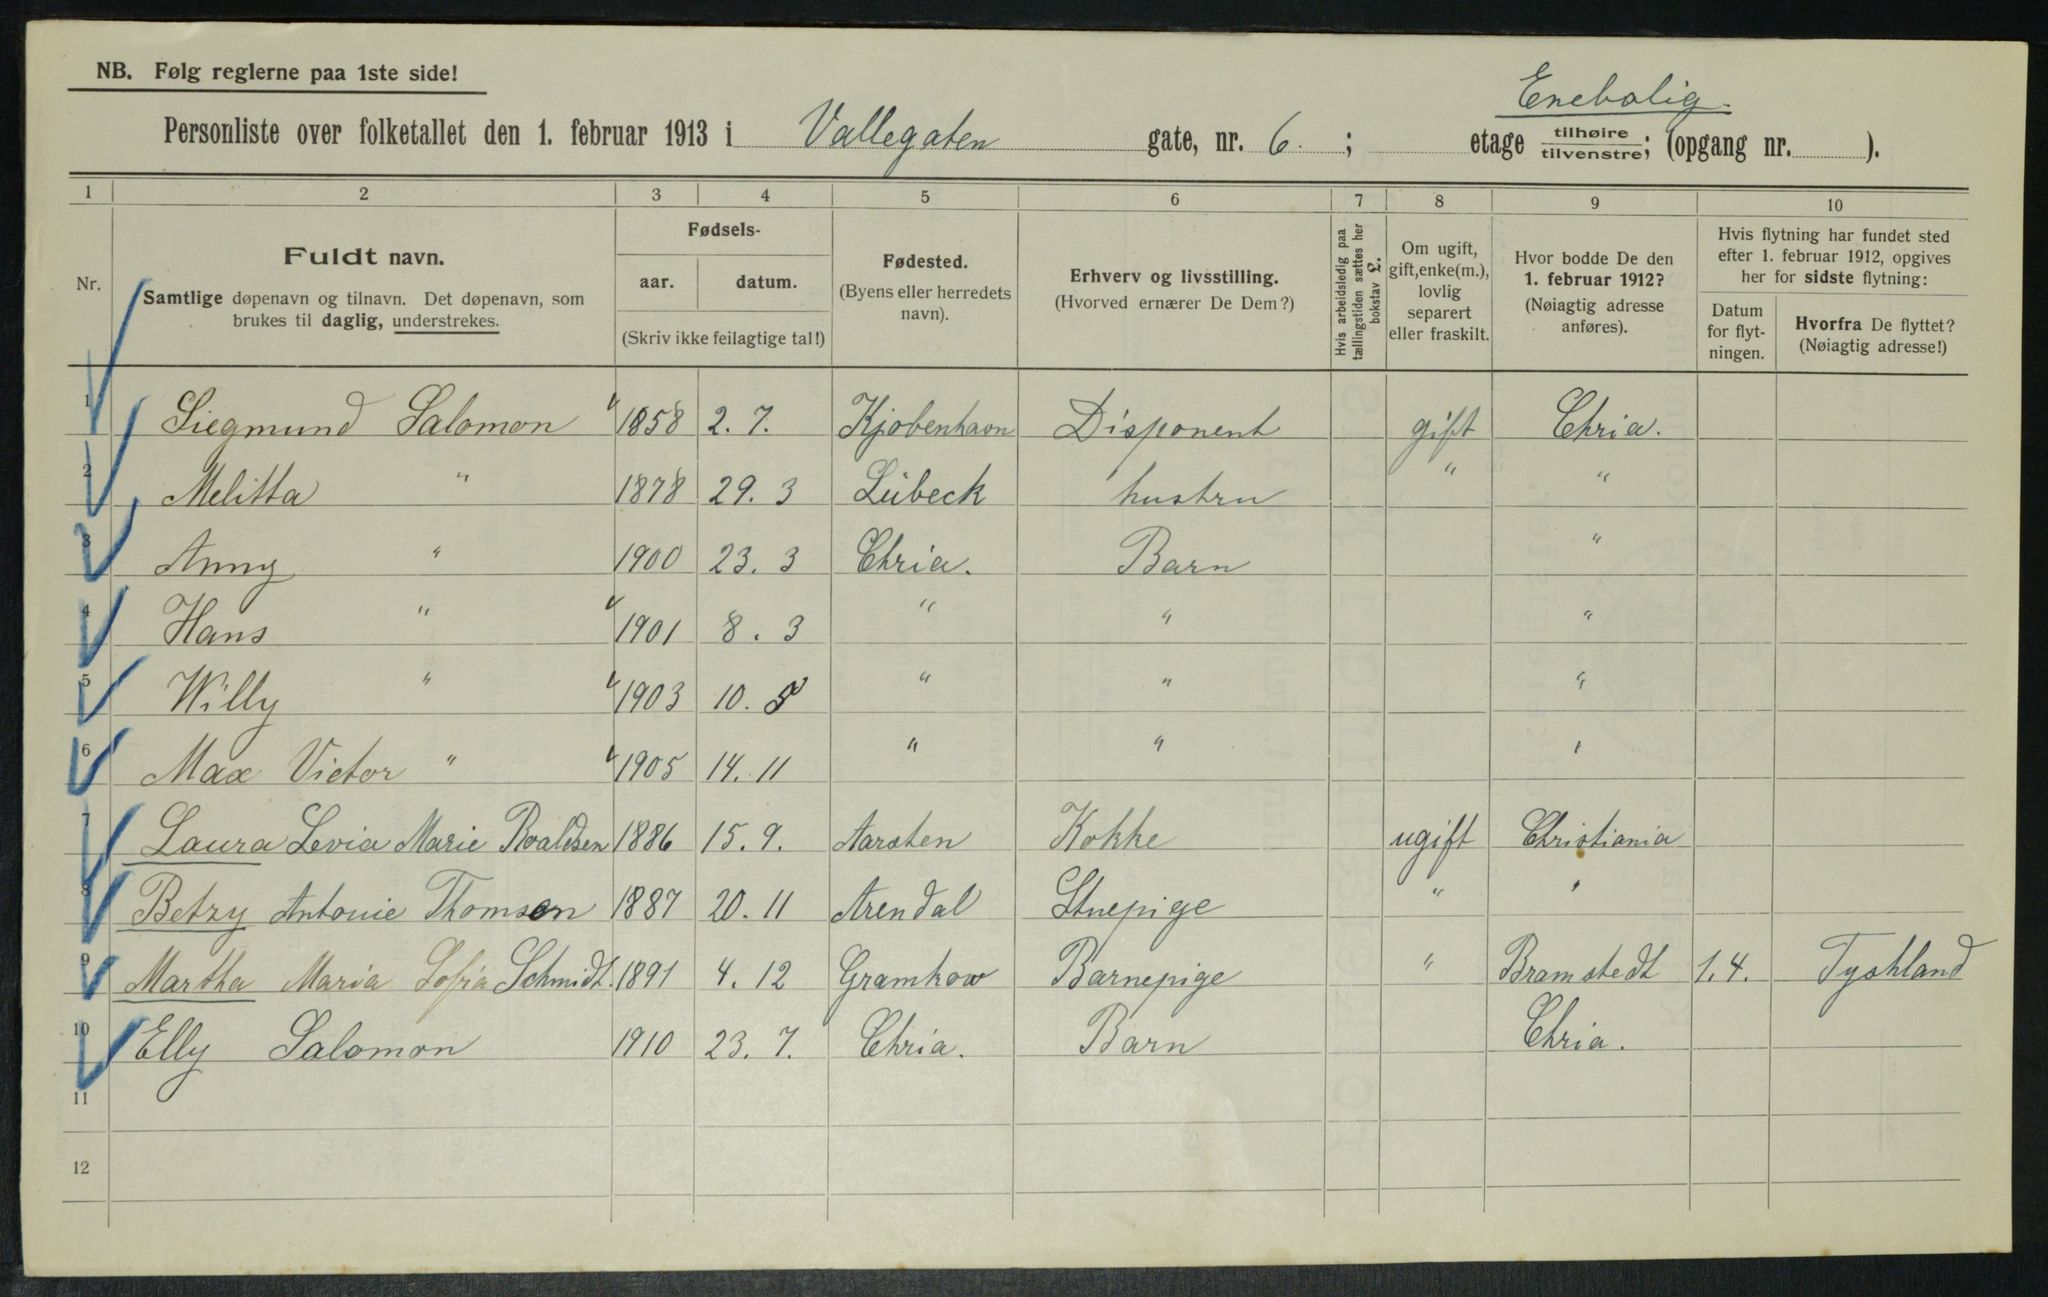 NB. Følg reglerne paa 1ste side!
Enebolig.
Personliste over folketallet den 1. februar 1913 i Vallegaten gate, nr. 6. ; etage tilhøire / tilvenstre; (opgang nr. ).
1 2 3 4 5 6 7 8 9 10
Nr.
Fuldt navn.
Samtlige døpenavn og tilnavn. Det døpenavn, som
brukes til daglig, understrekes.
Fødsels-
aar. datum.
(Skriv ikke feilagtige tal!)
Fødested.
(Byens eller herredets
navn).
Erhverv og livsstilling.
(Hvorved ernærer De Dem?)
Hvis arbeidsledig paa
tællingstiden sættes her
bokstav L.
Om ugift,
gift, enke(m.),
lovlig
separert
eller fraskilt.
Hvor bodde De den
1. februar 1912?
(Nøiagtig adresse
anføres).
Hvis flytning har fundet sted
efter 1. februar 1912, opgives
her for sidste flytning:
Datum
for flyt-
ningen.
Hvorfra De flyttet?
(Nøiagtig adresse!)
1 Siegmund Salomon 1858 2. 7. Kjøbenhavn Disponent gift Chria.
2 Melitta " 1878 29. 3 Lübeck hustru " "
3 Anny " 1900 23. 3 Chria. Barn "
4 Hans " 1901 8. 3 " " "
5 Willy " 1903 10. 5 " " "
6 Max Victor " 1905 14. 11 " " "
7 Laura Levia Marie Roaldsen 1886 15. 9. Aarsten Kokke ugift Christiania
8 Betzy Antonie Thomsen 1887 20. 11 Arendal Stuepige " "
9 Martha Maria Sofia Schmidt. 1891 4. 12 Gramkow Barnepige " Bramstedt 1. 4. Tyskland
10 Elly Salomon 1910 23. 7. Chria. Barn Chria.
11
12